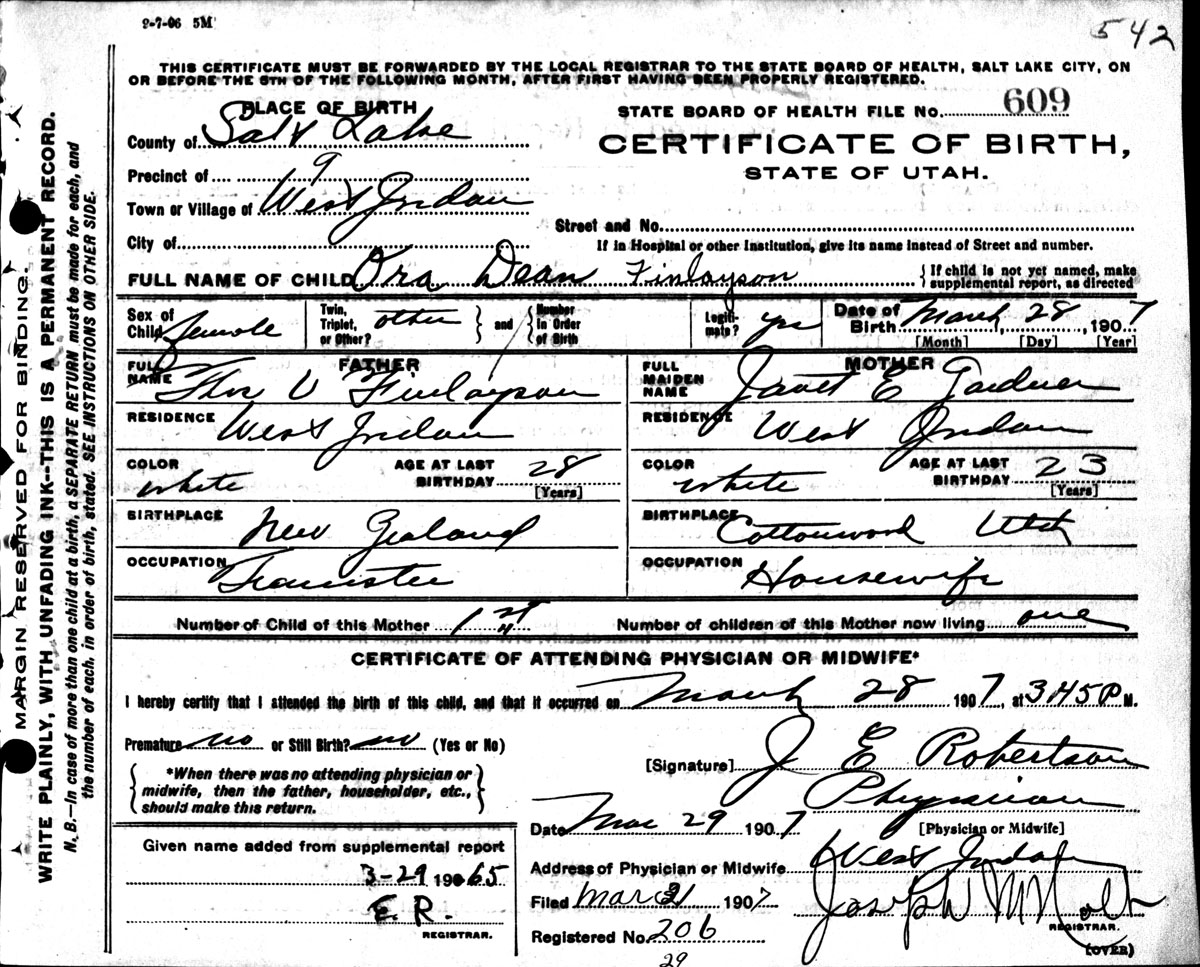 2-7-06 5M
542
THIS CERTIFICATE MUST BE FORWARDED BY THE LOCAL REGISTRAR TO THE STATE BOARD OF HEALTH, SALT LAKE CITY, ON
OR BEFORE THE 5TH OF THE FOLLOWING MONTH, AFTER FIRST HAVING BEEN PROPERLY REGISTERED.
PLACE OF BIRTH
STATE BOARD OF HEALTH FILE No. 609
County of Salt Lake
CERTIFICATE OF BIRTH,
STATE OF UTAH.
Precinct of 9
Town or Village of West Jordan
Street and No.
City of
If in Hospital or other Institution, give its name instead of Street and number.
FULL NAME OF CHILD Ora Dean Finlayson { If child is not yet named, make
supplemental report, as directed
Sex of Child female
Twin, Triplet, or Other? other } and { Number in Order of Birth
Legitimate? yes
Date of Birth March 28, 1907
[Month] [Day] [Year]
FATHER
FULL NAME Thos V Finlayson
MOTHER
FULL MAIDEN NAME Janet E Gardner
RESIDENCE West Jordan
RESIDENCE West Jordan
COLOR white AGE AT LAST BIRTHDAY 28 [Years]
COLOR white AGE AT LAST BIRTHDAY 23 [Years]
BIRTHPLACE New Zealand
BIRTHPLACE Cottonwood Utah
OCCUPATION Teamster
OCCUPATION Housewife
Number of Child of this Mother 1st Number of children of this Mother now living one
CERTIFICATE OF ATTENDING PHYSICIAN OR MIDWIFE*
I hereby certify that I attended the birth of this child, and that it occurred on March 28 1907, at 3:45 P M.
Premature no or Still Birth? no (Yes or No)
*When there was no attending physician or
midwife, then the father, householder, etc.,
should make this return.
[Signature] J E Robertson
Physician
[Physician or Midwife]
Date Mar 29 1907
Address of Physician or Midwife West Jordan
Given name added from supplemental report
3-29 1965
E.R.
REGISTRAR.
Filed Mar 31 1907
Joseph M Holt
REGISTRAR.
Registered No. 206
(OVER)
29
MARGIN RESERVED FOR BINDING.
WRITE PLAINLY, WITH UNFADING INK--THIS IS A PERMANENT RECORD.
N. B.—In case of more than one child at a birth, a SEPARATE RETURN must be made for each, and
the number of each, in order of birth, stated. SEE INSTRUCTIONS ON OTHER SIDE.